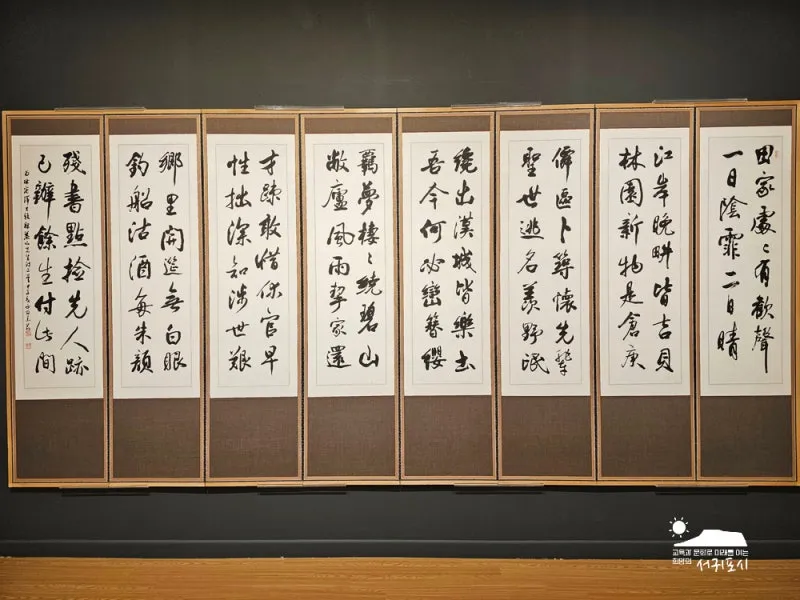 田家處〻有歡聲
一日陰霏二日晴
江岸晩畊皆吉貝
林園新物是倉庚
僻區卜築懷先輩
聖世逃名羨野氓
纔出漢城皆樂土
吾今何必戀簪纓
羈夢棲〻繞碧山
敝廬風雨挈家還
才疎敢惜休官早
性拙深知涉世艱
鄉里開筵無白眼
釣船沽酒每朱顔
殘書點撿先人跡
已辦餘生付此間
교육과 문화로 미래를 여는
희망의 서귀포시